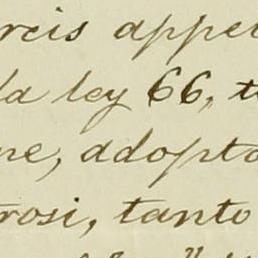 rcis appel
la ley 66, t
ne, adopto
rosi, tanto